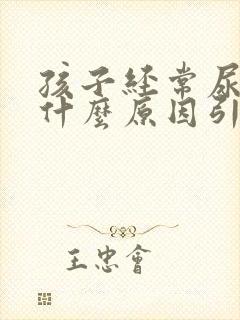 孩子經常尿
什麼原因引
王忠會